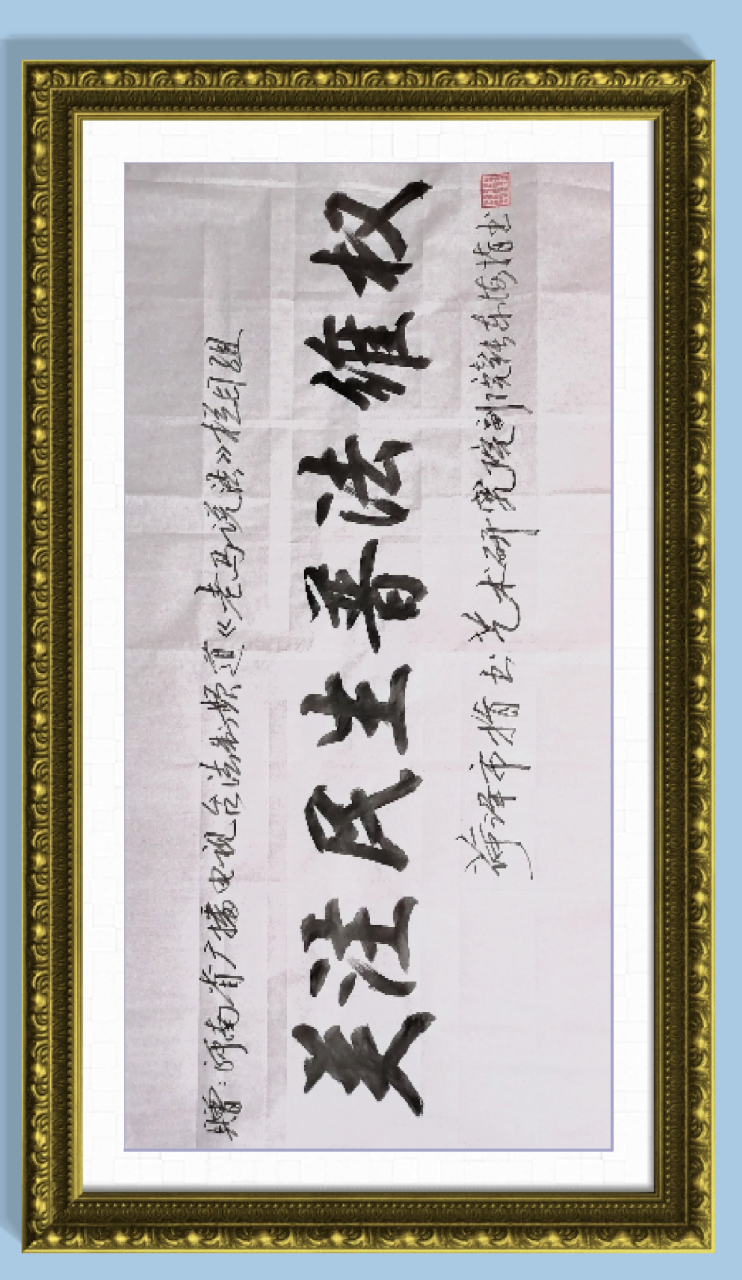 赠:河南省广播电视台法制频道《老马说法》栏目组
关注民生普法维权
菏泽市指书艺术研究院副院长